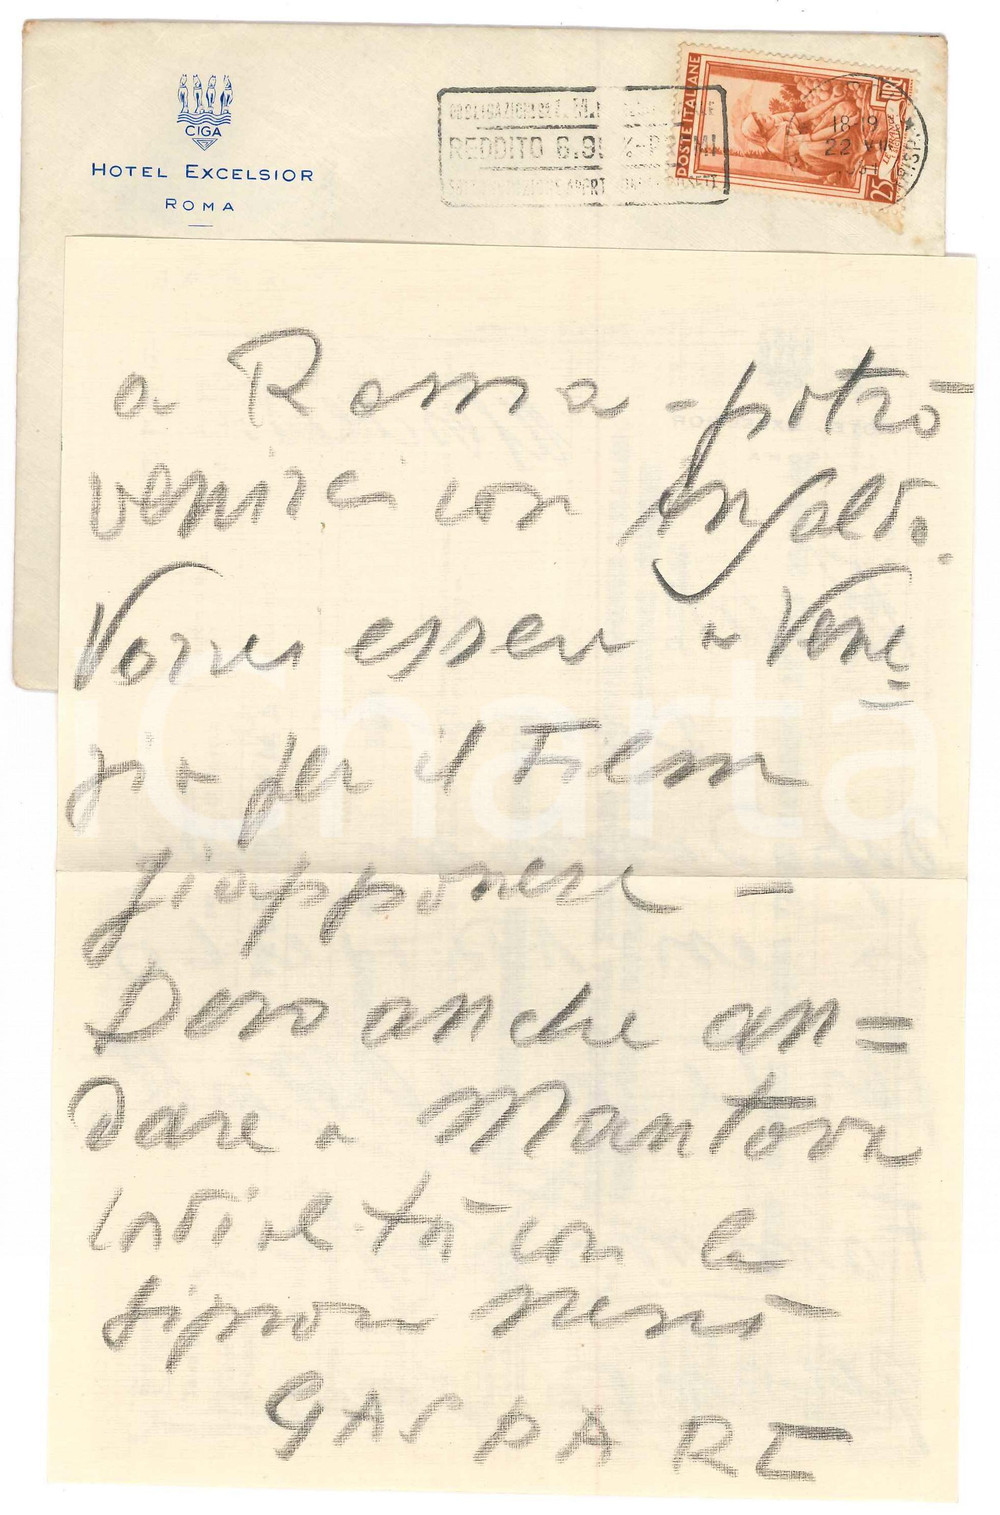 CIGA
HOTEL EXCELSIOR
ROMA
REDDITO
POSTE ITALIANE
LIRE
25
18-19
22 VII
a Roma - potrò
venire con
Vorrei essere a Vene=
zia per il Film
giapponese -
Devo anche an=
dare a Mantova
con la
Signora
GASPARE